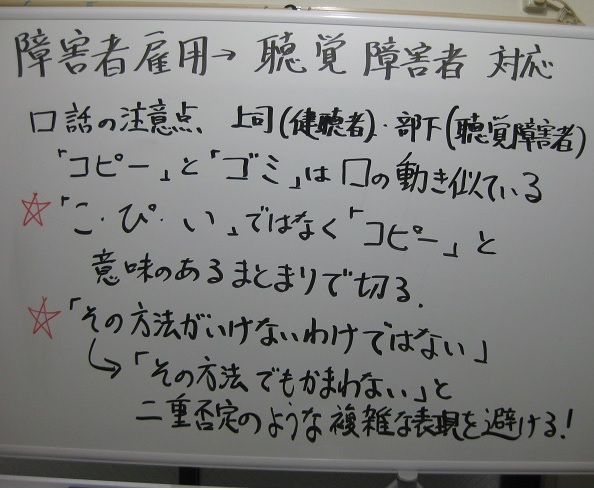 障害者雇用→聴覚障害者 対応
口話の注意点 上司(健聴者)・部下(聴覚障害者)
「コピー」と「ゴミ」は口の動き似ている
☆「こ・ぴ・い」ではなく「コピー」と
意味のあるまとまりで切る.
☆「その方法がいけないわけではない」
↳「その方法でもかまわない」と
二重否定のような複雑な表現を避ける!